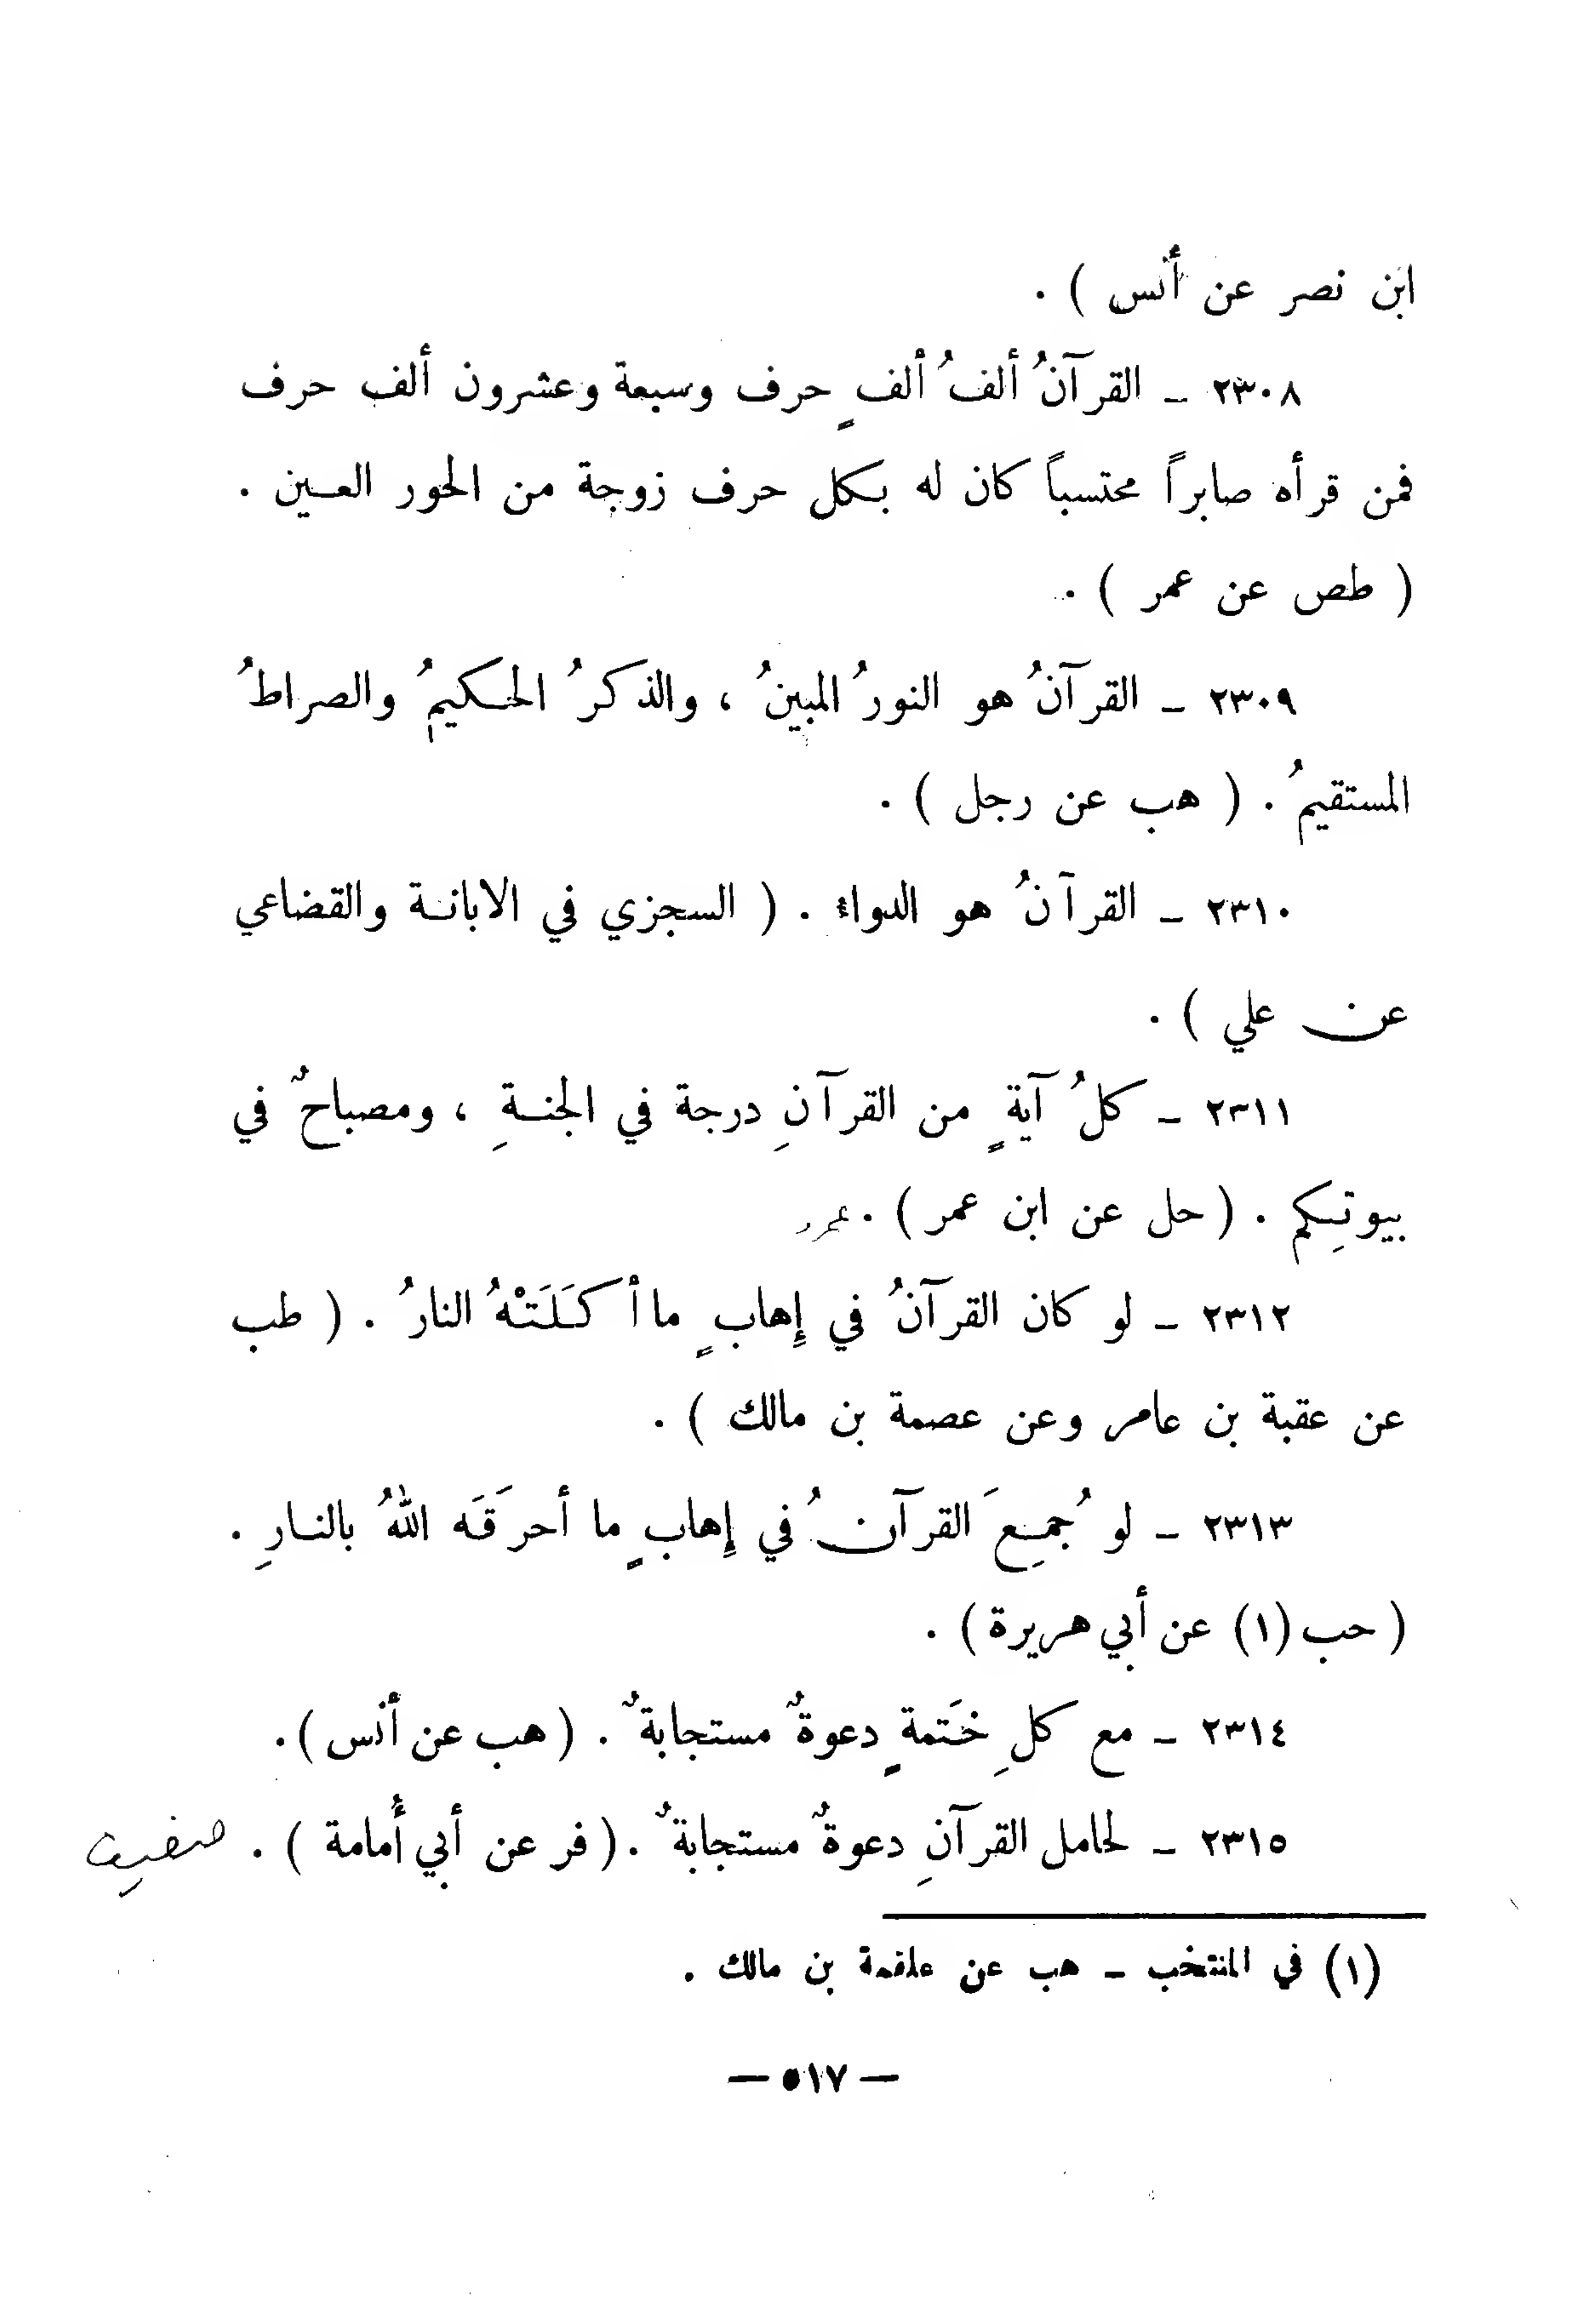 ابن نصر عن أنس ) .
٢٣٠٨ ــ القرآنُ ألفُ ألفٍ حرف وسبعة وعشرون ألف حرف
فمن قرأه صابراً محتسباً كان له بكل حرف زوجة من الحور العـين .
( طص عن عمر ) .
٢٣٠٩ ــ القرآنُ هو النورُ المبينُ ، والذكرُ الحـكيمُ والصراطُ
المستقيمُ . ( هب عن رجل ) .
٢٣١٠ ــ القرآنُ هو الدواء . ( السجزي في الابانـة والقضاعي
عن علي ) .
٢٣١١ ــ كلُ آيةٍ من القرآنِ درجة في الجنـةِ ، ومصباحٌ في
بيوتِكم . ( حل عن ابن عمر ) .
٢٣١٢ ــ لو كان القرآنُ في إِهابٍ ما أكَلَتْهُ النارُ . ( طب
عن عقبة بن عامر وعن عصمة بن مالك ) .
٢٣١٣ ــ لو جُمِعَ القرآنُ في إِهابٍ ما أحرَقَه اللهُ بالنـارِ .
( حب (١) عن أبي هريرة ) .
٢٣١٤ ــ مع كلِ خَتمةٍ دعوةٌ مستجابةٌ . ( هب عن أنس ) .
٢٣١٥ ــ لحامل القرآنِ دعوةٌ مستجابةٌ . ( فر عن أبي أُمامة ) .
(١) في المنتخب ــ هب عن علقمة بن مالك .
— ٥١٧ —